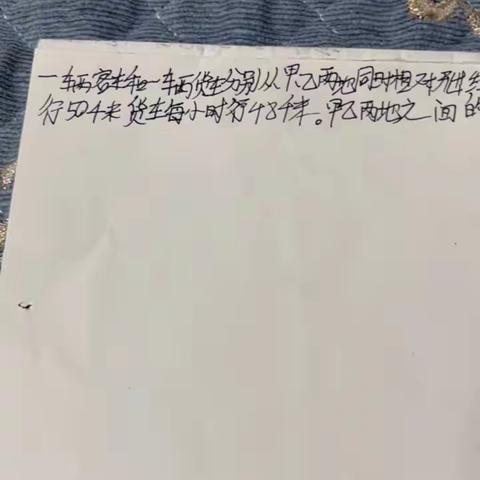 一辆客车和一辆货车分别从甲乙两地同时相对开出
行50千米货车每小时行48千米。甲乙两地之间的